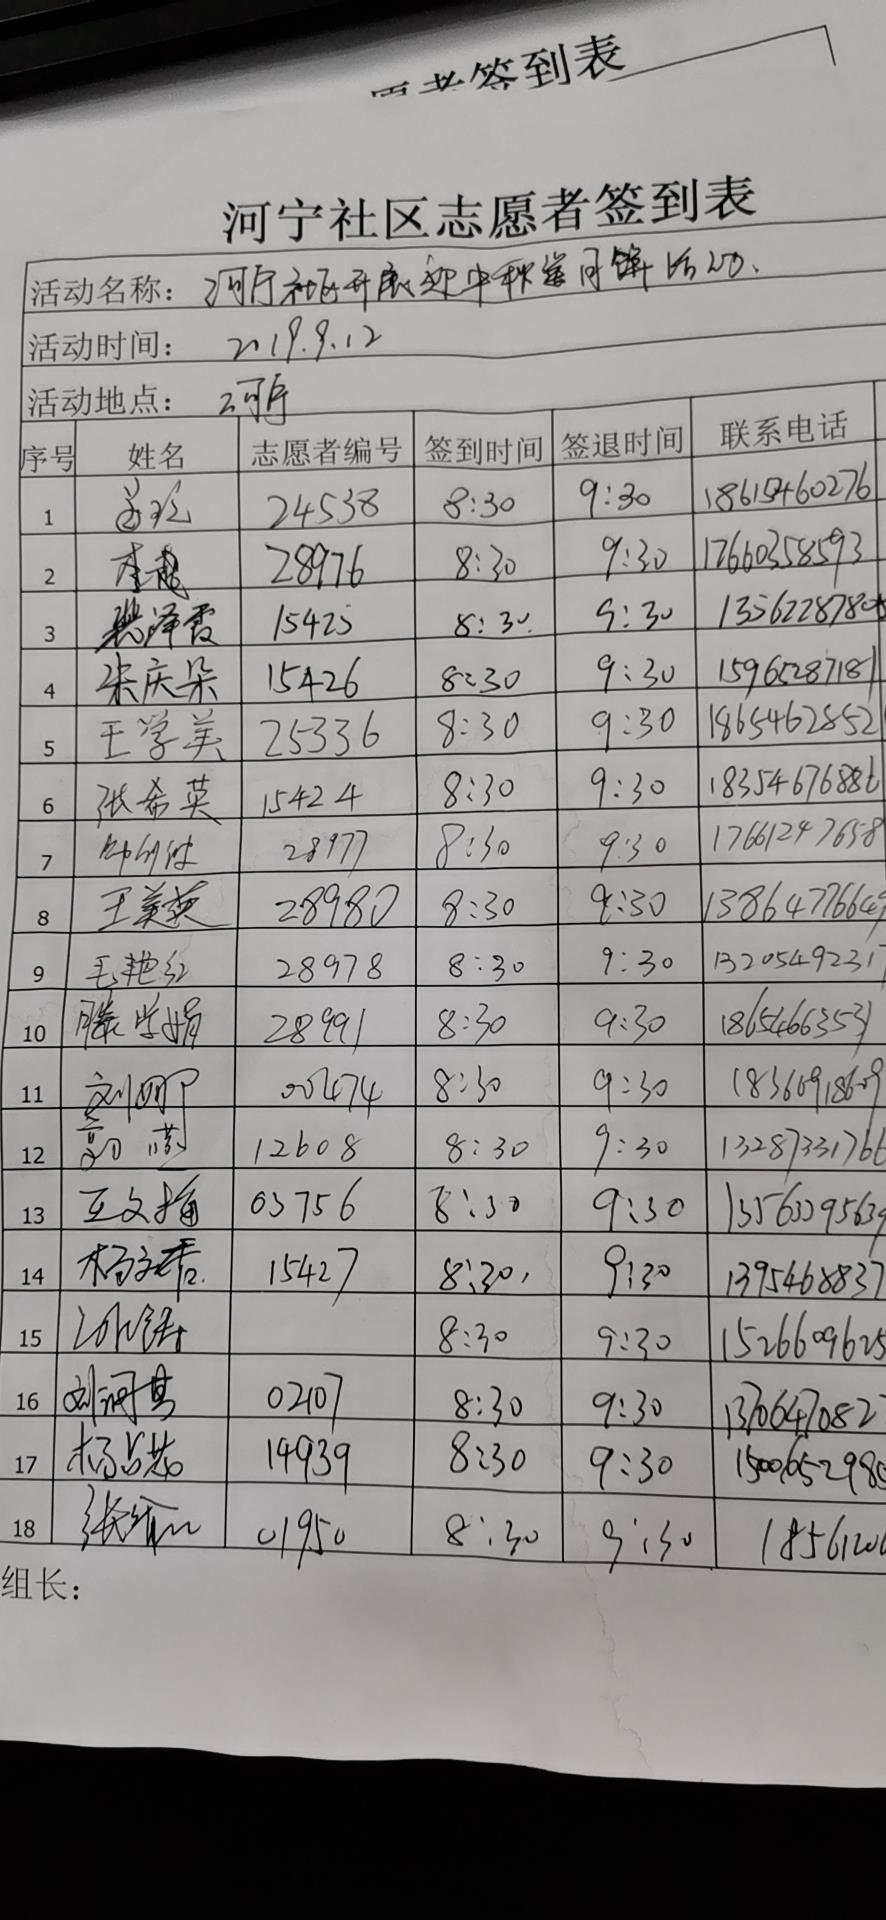 愿者签到表
河宁社区志愿者签到表
活动名称： 河宁社区开展迎中秋 月饼活动.
活动时间： 2019.9.12
活动地点： 河宁
序号 姓名 志愿者编号 签到时间 签退时间 联系电话
1 24538 8:30 9:30 18615460276
2 李 28976 8:30 9:30 17660358593
3 泽霞 15425 8:30 9:30
4 宋庆朵 15426 8:30 9:30 15965287181
5 王学美 25336 8:30 9:30 1865462852
6 张希英 15424 8:30 9:30
7 28977 8:30 9:30 17661247658
8 王美英 28980 8:30 9:30 13864776649
9 毛艳红 28978 8:30 9:30 13205492317
10 滕学娟 28991 8:30 9:30 18654663531
11 刘娜 00474 8:30 9:30
12 郭 12608 8:30 9:30 13287331766
13 文 03756 8:30 9:30
14 杨 15427 8:30 9:30 1395468837
15 8:30 9:30 1526609625
16 刘河 02107 8:30 9:30 1370647082
17 杨占 14939 8:30 9:30
18 张 01950 8:30 9:30
组长：